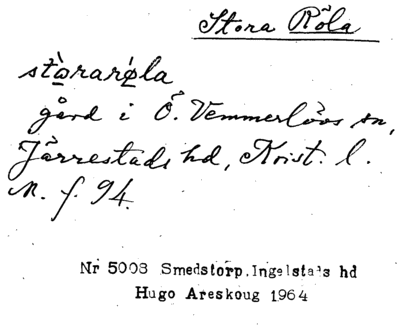 Stora Röla
stò̱rarǿ̱la
gård i Ö. Vemmerlövs sn,
Järrestads hd, Krist. l.
M. f. 94.
Nr 5008 Smedstorp.Ingelstads hd
Hugo Areskoug 1964